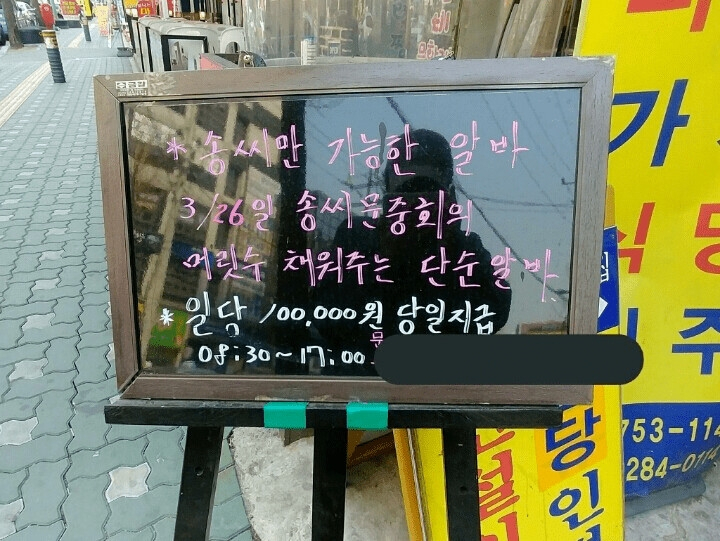 * 송씨만 가능한 알바
3/26일 송씨문중회의
머릿수 채워주는 단순알바
* 일당 100,000원 당일지급
08:30~17:00
문
가
식당
주
753-114
284-0114
당인